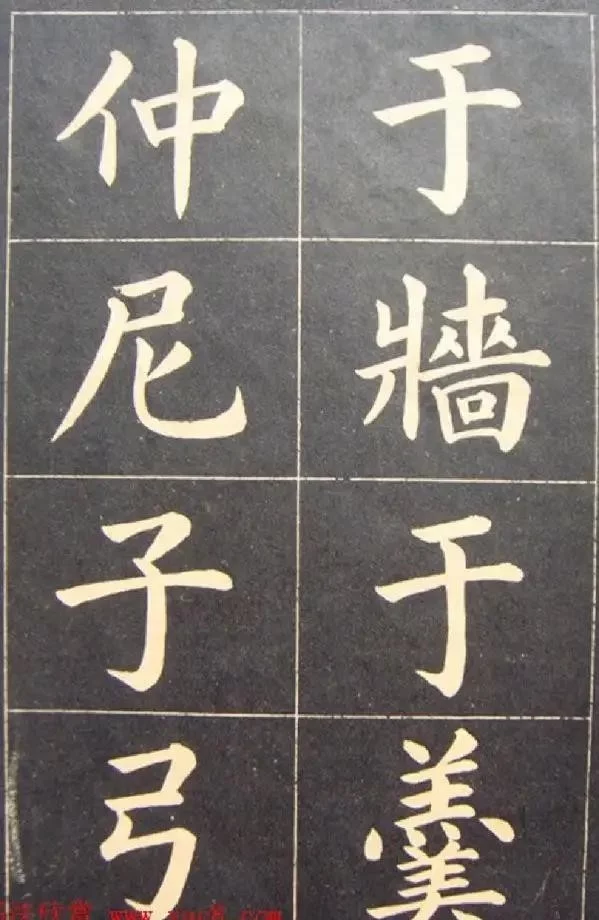 于牆于羹
仲尼子弓